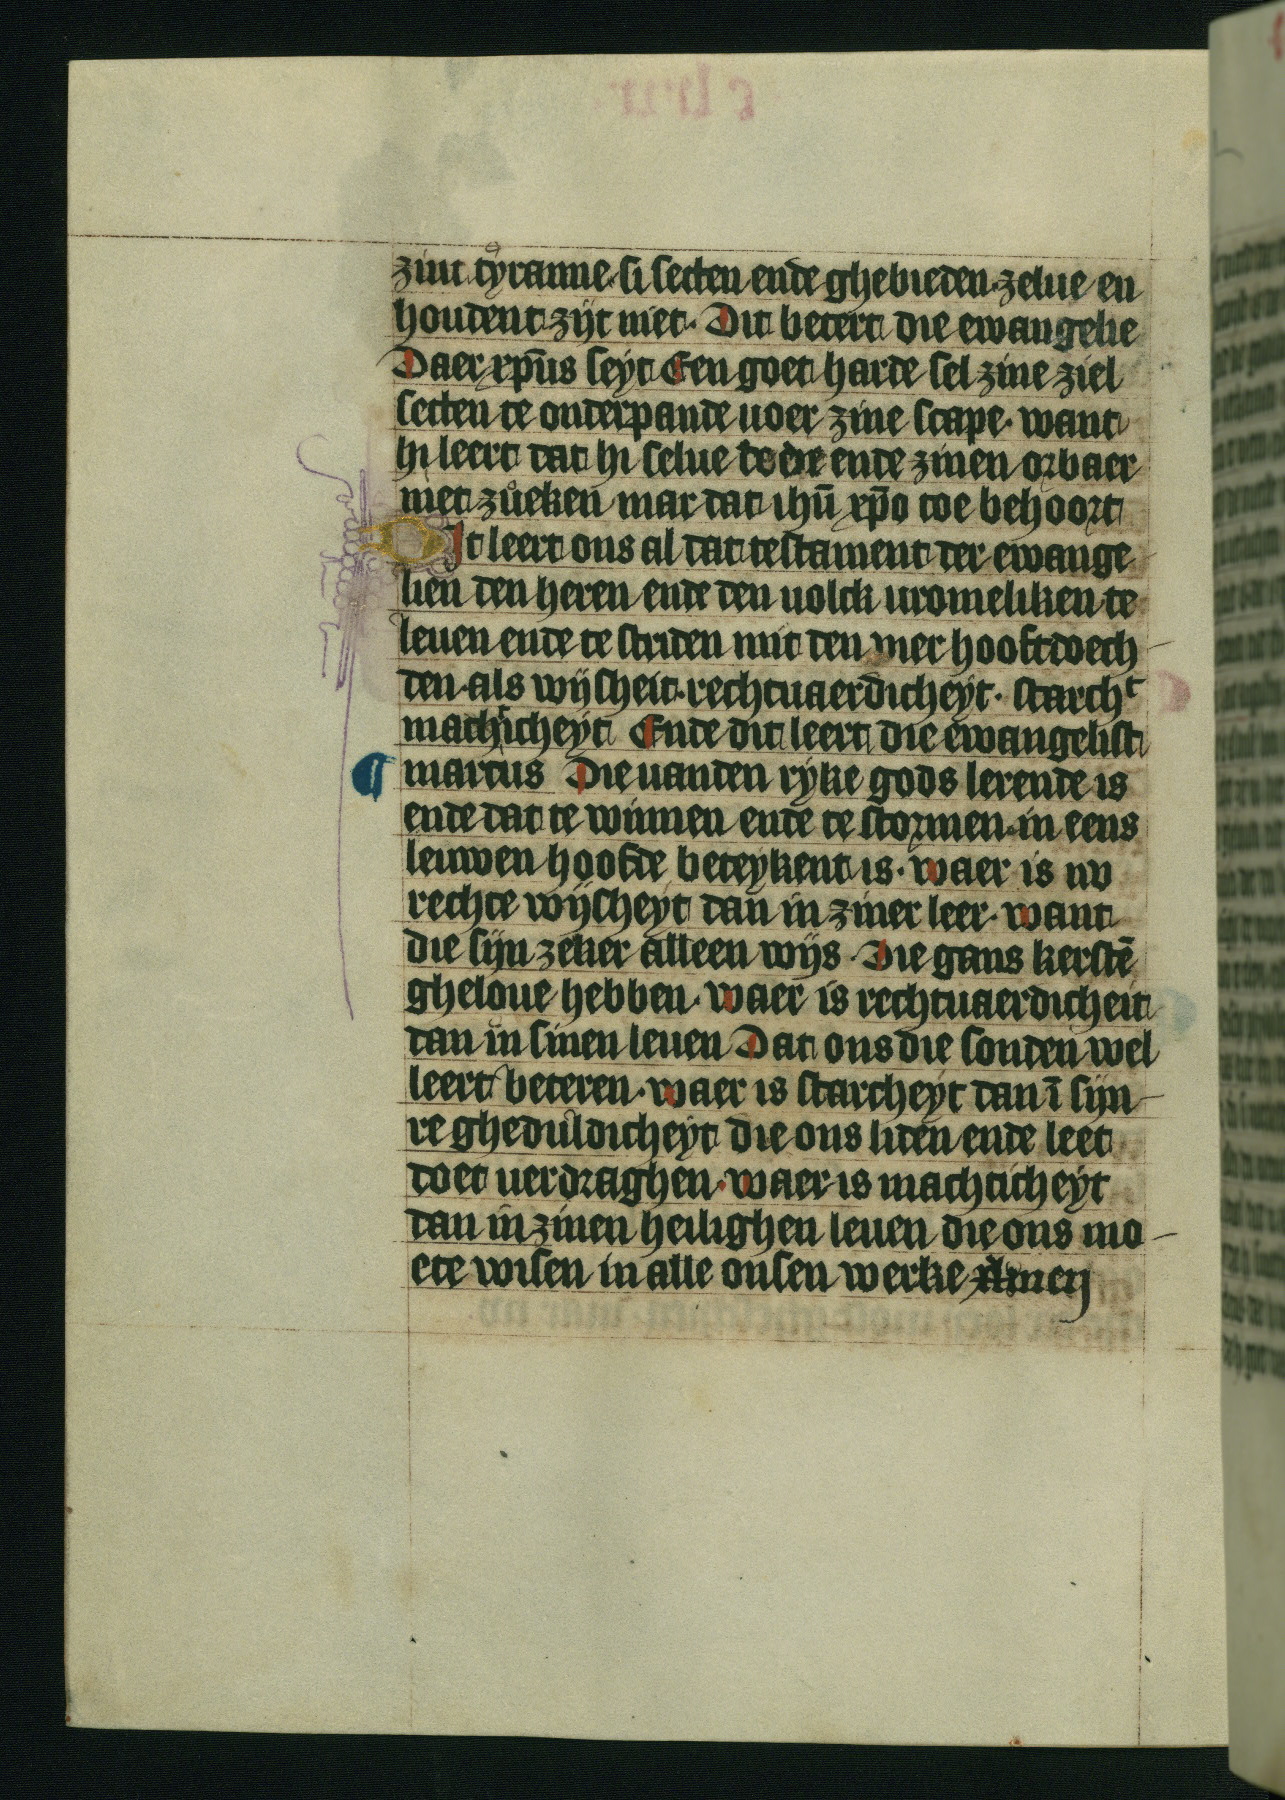 zint tyranne·si setten ende ghebieden·zelue en
houdent zijt niet· Dit betert die ewangelie
Daer xp̄us seyt Een goet harde sel zine ziel
setten te onderpande uoer zine scape· want
hi leert dat hi selue dode ende zinen orbaer
niet zůeken mar dat ihū xp̄o toe behoort
Dit leert ons al dat testament der ewange
lien den heren ende den uolck uromeliken te
leuen ende te striden mit den vier hooftdoech-
den·als wijsheit·rechtuaerdicheyt· starch
machticheyt Ende dit leert die ewangelist
¶ marcus Die uanden ryke gods lerende is
ende dat te winnen ende te stormen·in eens
leuwen hoofde beteykent is· waer is nv
rechte wijsheyt dan in ziner leer· want
die sijn zeker alleen wijs· Die gans kerstē
gheloue hebben· waer is rechtuaerdicheit
dan in sinen leuen Dat ons die sonden wel
leert beteren· waer is starcheyt dan ī sijn-
re gheduldicheyt die ons liden ende leet
doet uerdraghen· waer is machticheyt
dan in zinen heilighen leuen die ons mo-
ete wisen in alle onsen werke Amen